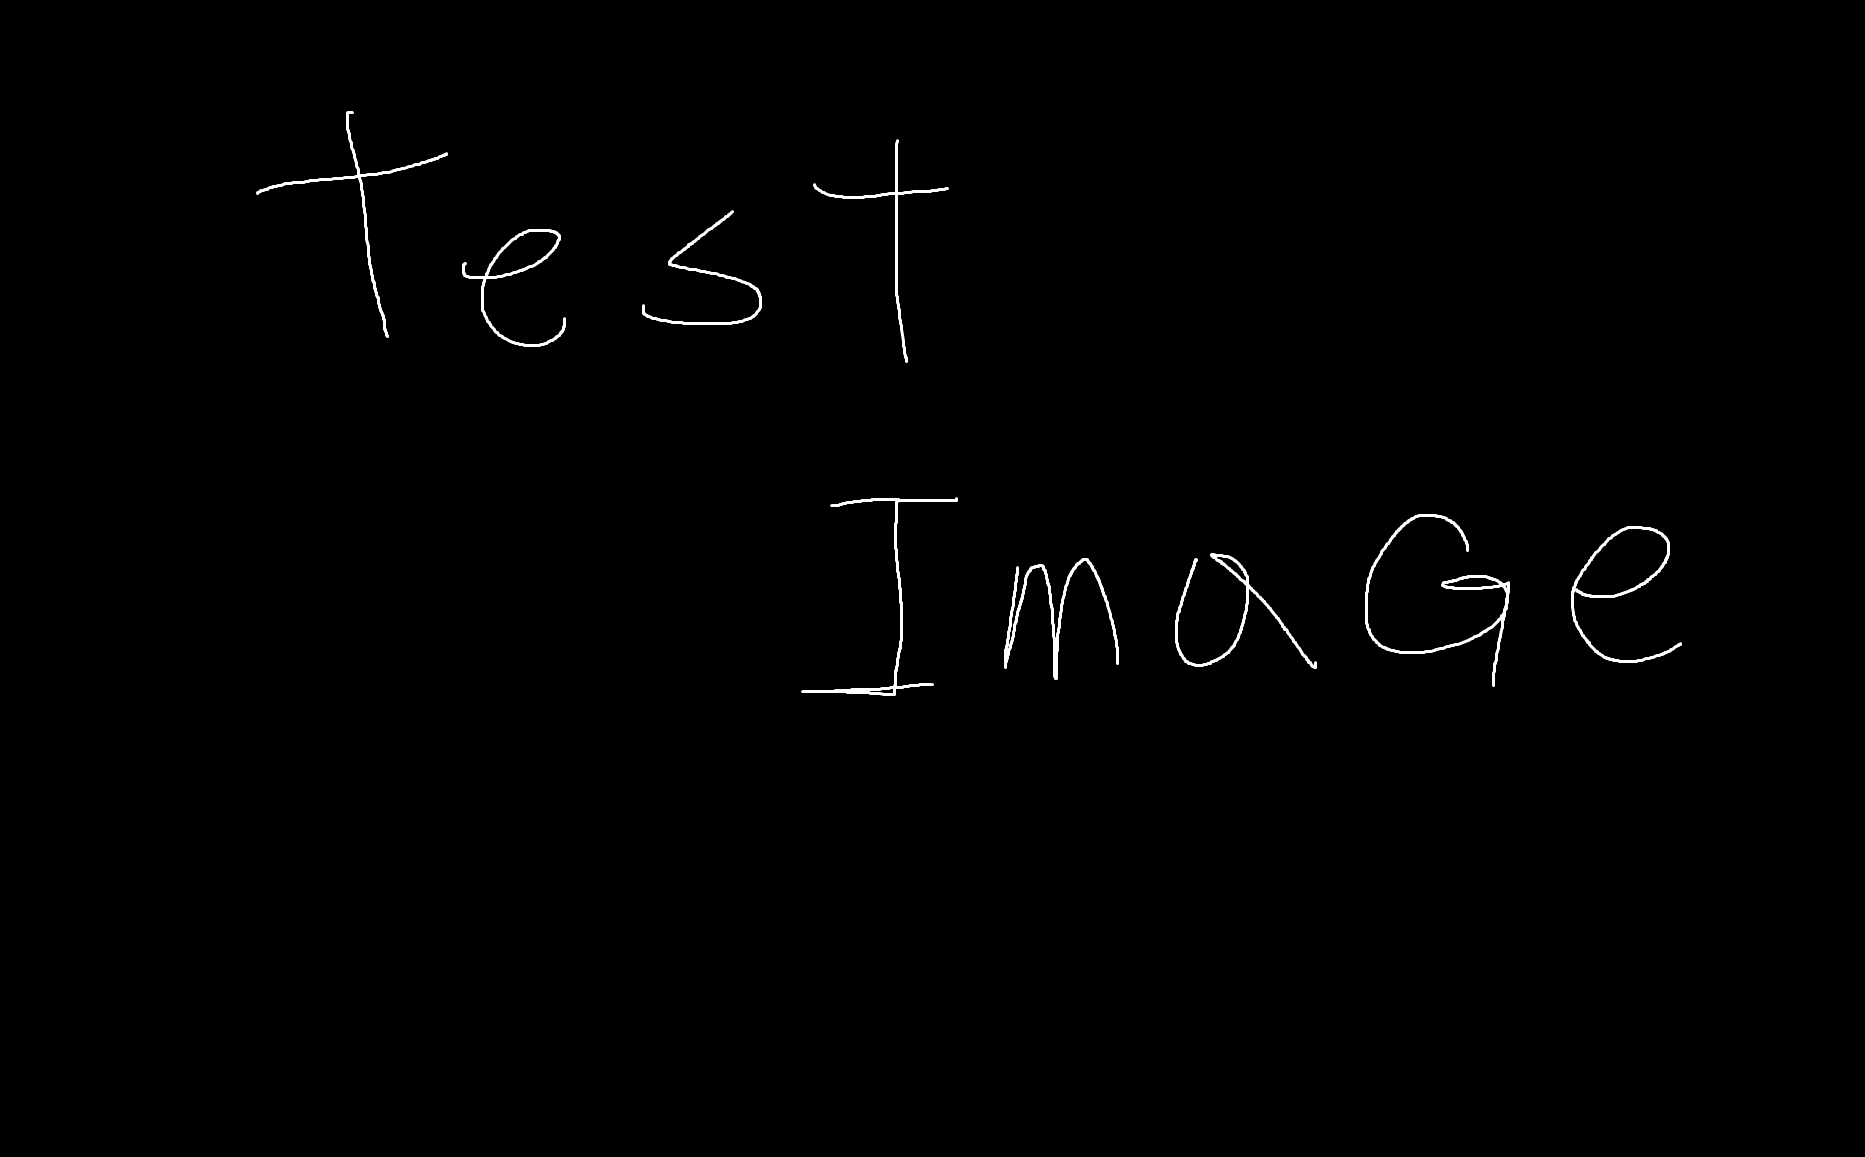 Test
ImaGe